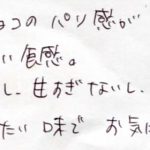 ョコの パリ感が
い食感。
し、甘すぎないし、
たい 味で お気に